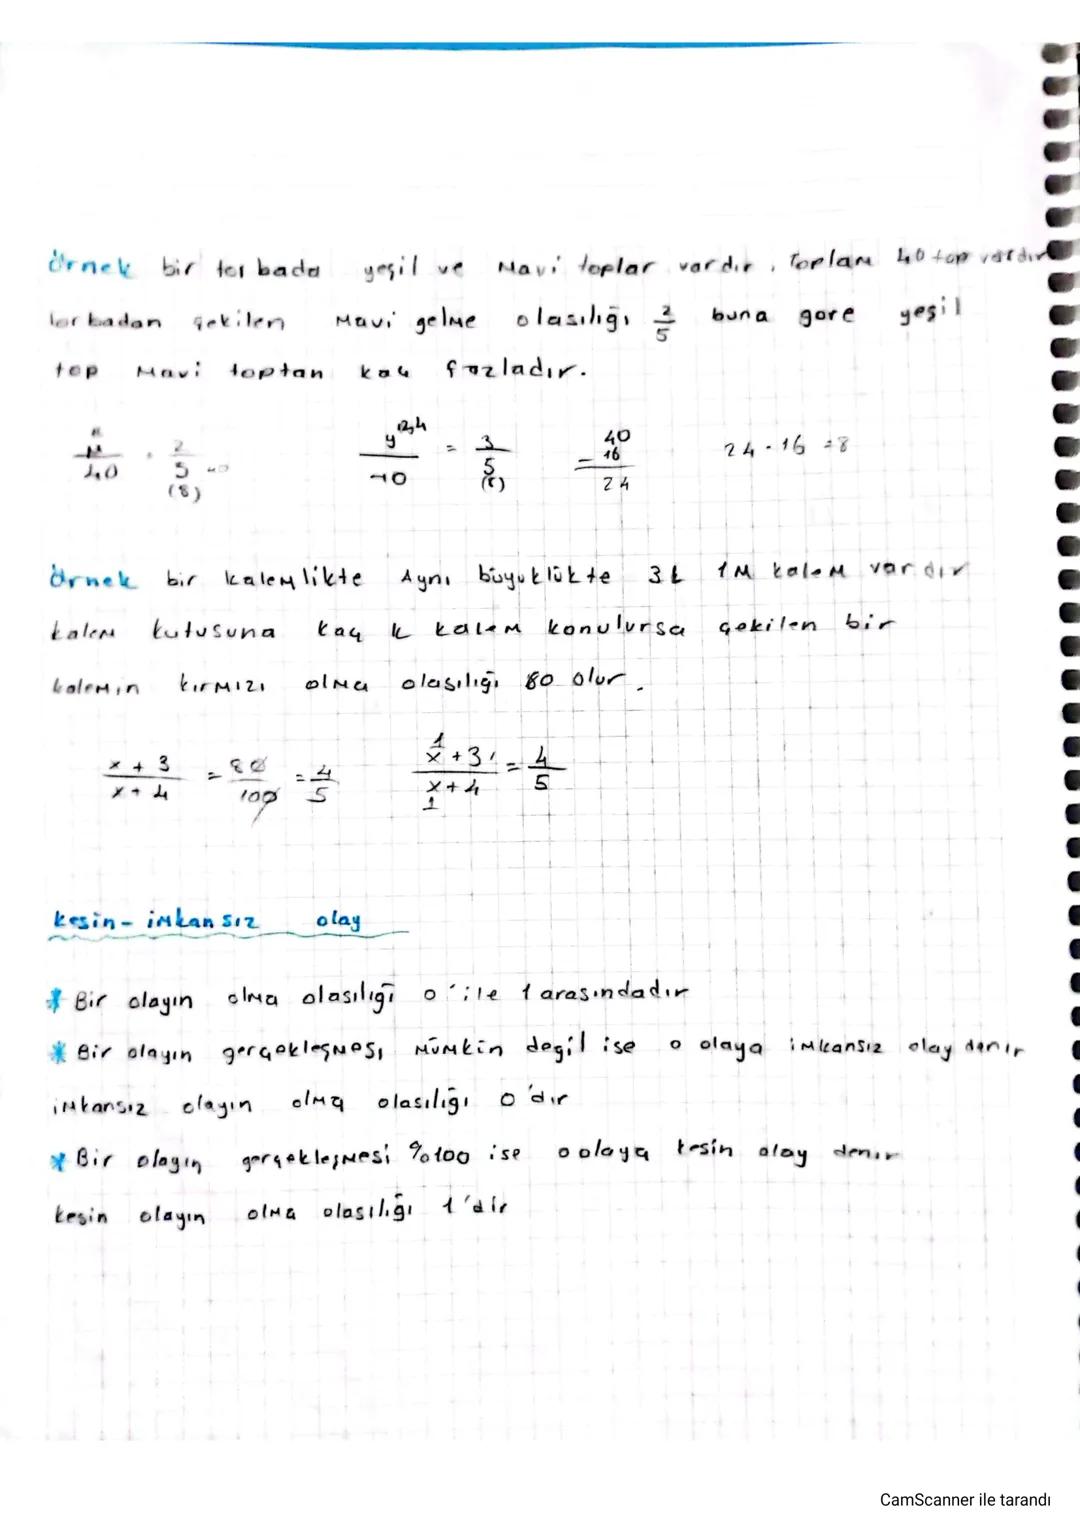 örnek bir torbada yeşil ve Mavi toplar vardır. Toplam 40 top vardır
torbadan çekilen Mavi gelme olasılığı 2/5 buna göre yeşil
top Mavi toptan kaç fazladır.
M/40 = 2/5 (8) y/40 = 3/5 (8) 40 - 16 = 24 24 - 16 = 8
örnek bir kalemlikte Aynı büyüklükte 3k 1M kalem vardır
kalem kutusuna kaç k kalem konulursa çekilen bir
kalemin kırmızı olma olasılığı 80 olur.
x + 3 / x + 4 = 80/100 = 4/5 x + 3 / x + 4 = 4/5
kesin - imkansız olay
* Bir olayın olma olasılığı 0 ile 1 arasındadır
* Bir olayın gerçekleşmesi mümkün değil ise o olaya imkansız olay denir
imkansız olayın olma olasılığı 0'dır
* Bir olayın gerçekleşmesi %100 ise o olaya kesin olay denir
kesin olayın olma olasılığı 1'dir
CamScanner ile tarandı